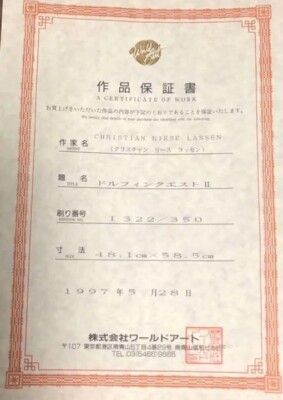 作品保証書
A CERTIFICATE OF WORK
お買上げいただいた作品の内容が下記のとおりであることを保証いたします。
We certify that details of your purchase are identical with the following
作家名 CHRISTIAN RIESE LASSEN
ARTIST (クリスティャン リース ラッセン)
題名 ドルフィンクエストⅡ
TITLE
刷り番号 1322/350
EDITION NO.
寸法 48.1cm×58.5cm
SIZE
1997年5月28日
株式会社ワールドアート
〒107 東京都港区南青山5丁目4番29号
TEL.03(5466)9665